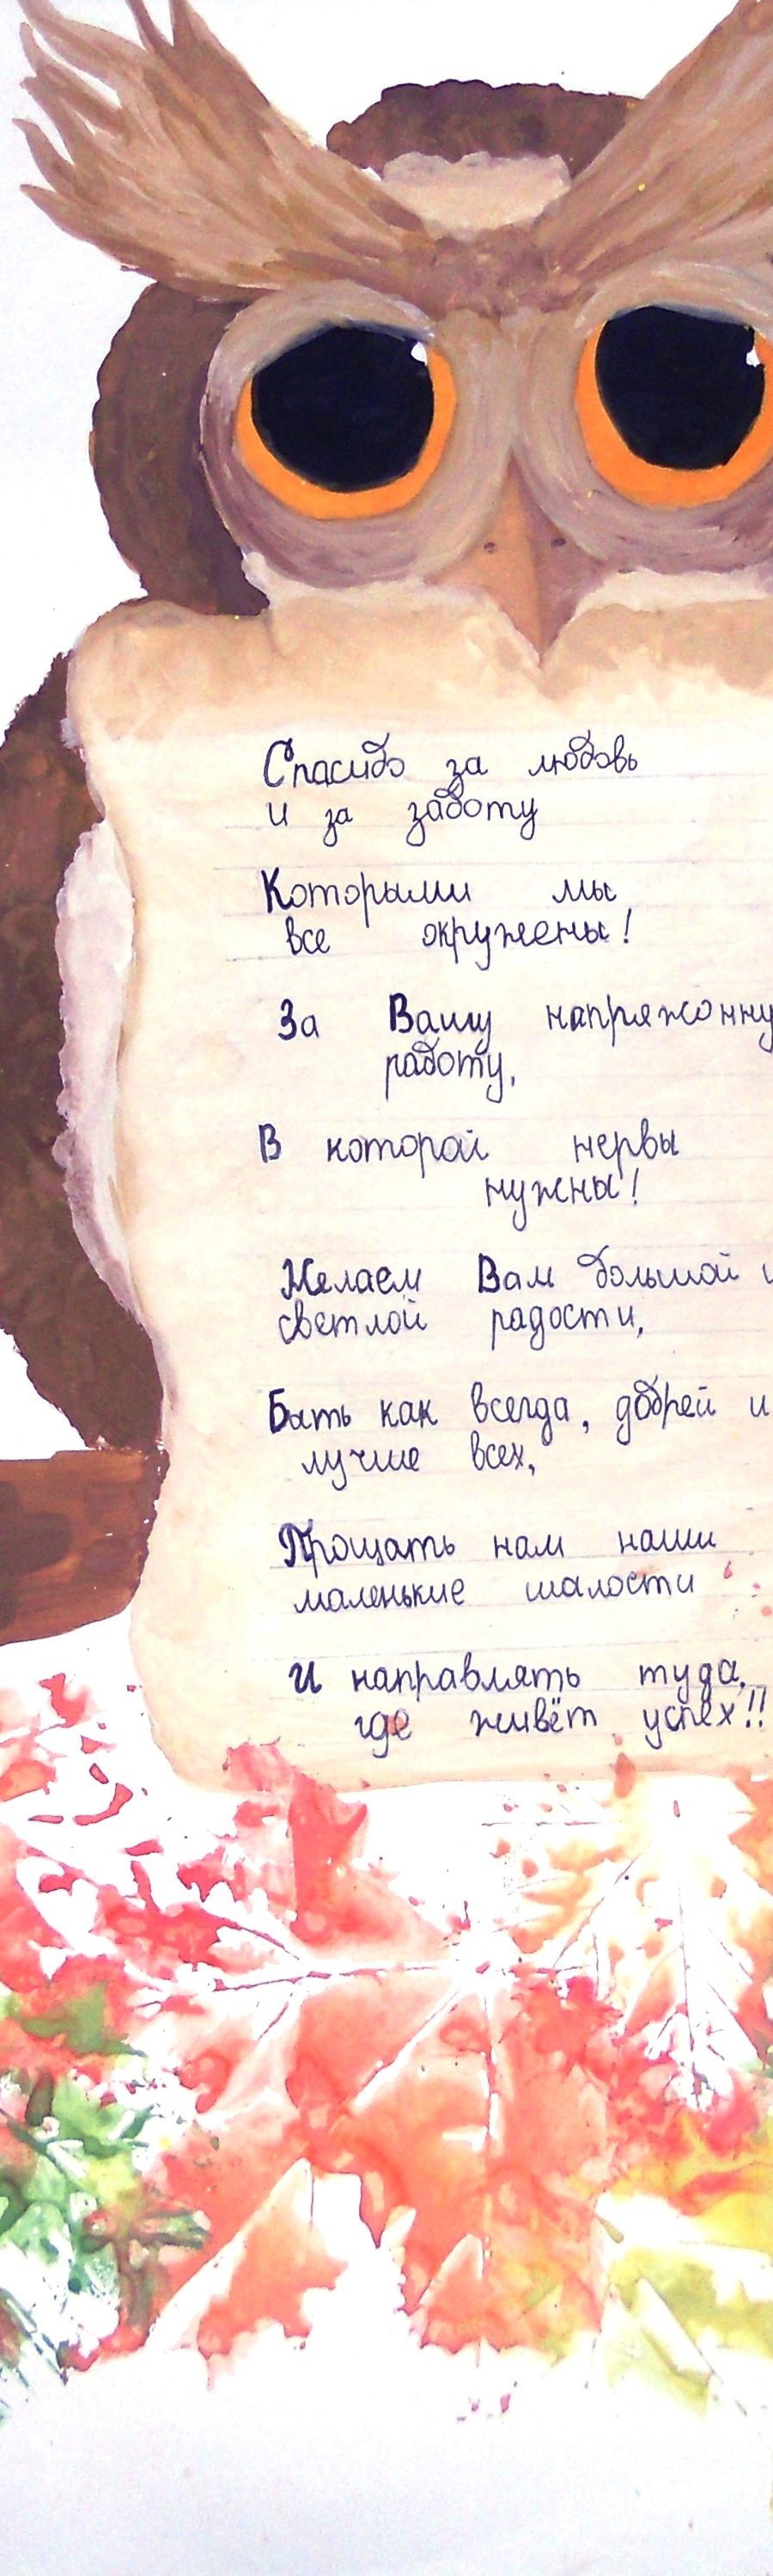 Спасибо за любовь
и за заботу
Которыми мы
все окружены!
За Вашу напряжонну
работу,
В которой нервы
нужны!
Желаем Вам большой и
светлой радости,
Быть как всегда, добрей и
лучше всех,
Прощать нам наши
маленькие шалости
И направлять туда,
где живёт успех!!